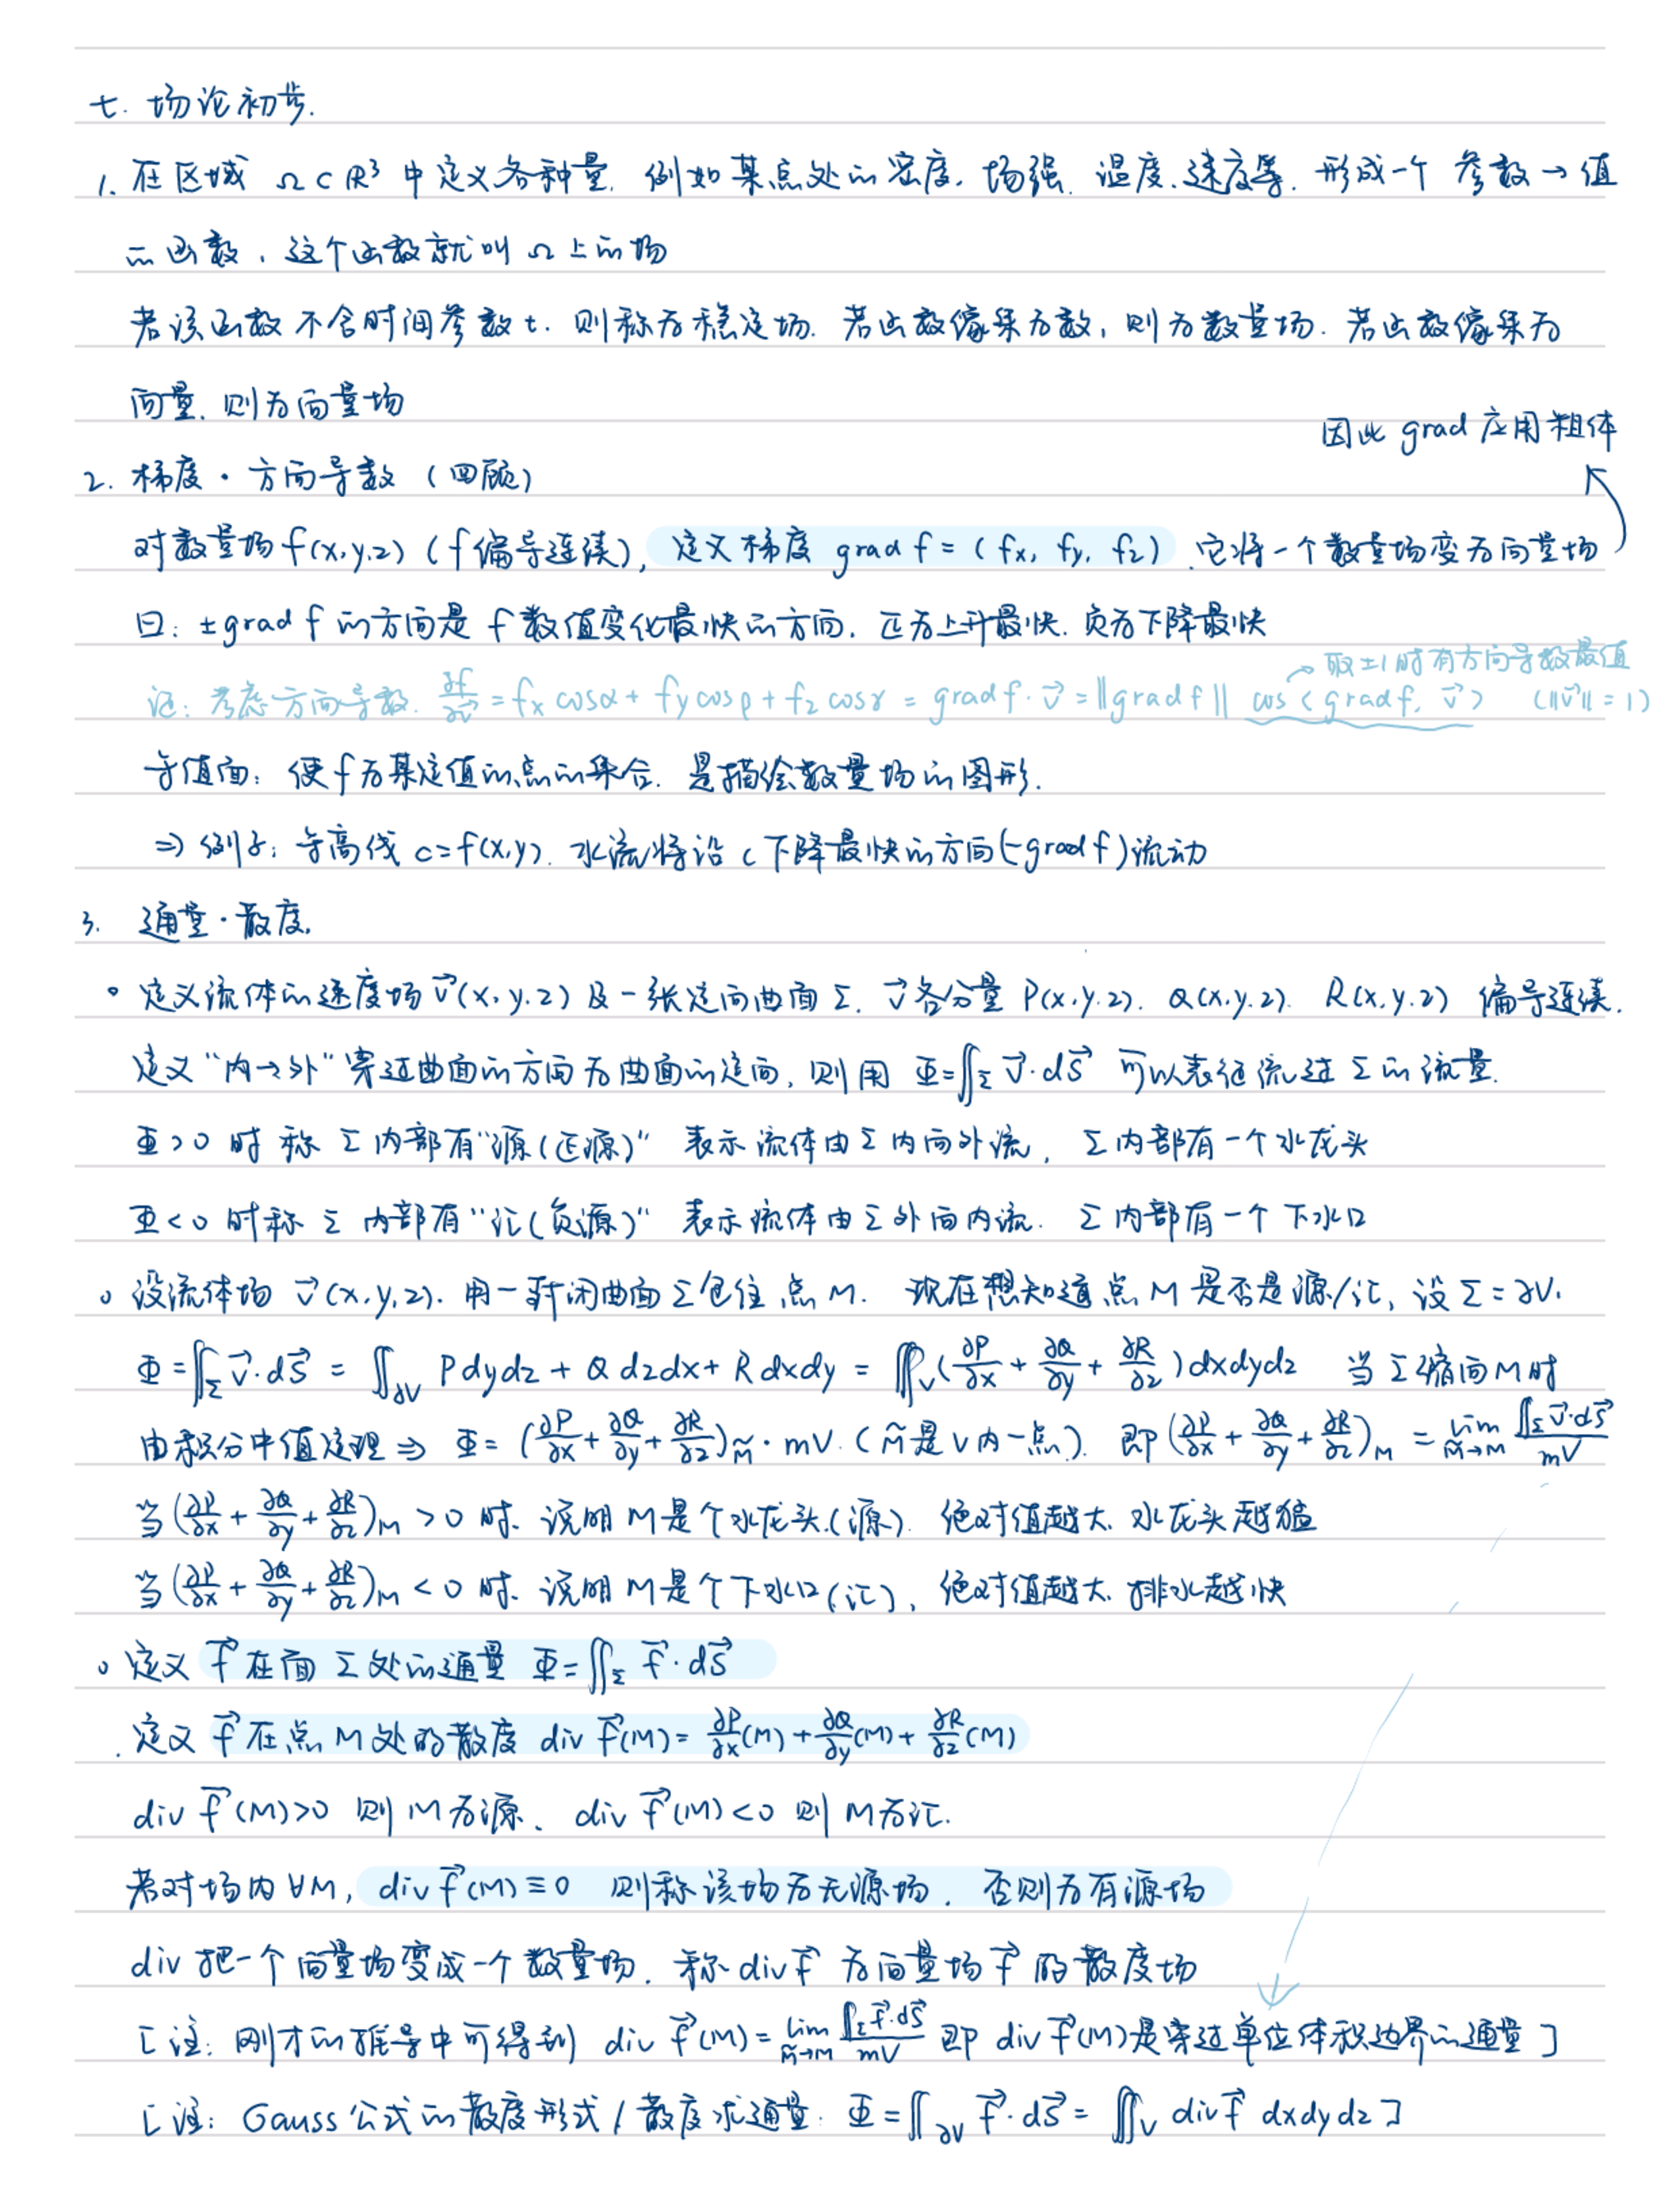 七. 场论初步.
1. 在区域 Ω⊂R³ 中定义各种量. 例如某点处的密度. 场强. 温度. 速度等. 形成一个 参数→值
的函数, 这个函数就叫 Ω 上的场
若该函数不含时间参数 t. 则称为稳定场. 若函数像集为数, 则为数量场. 若函数像集为
向量. 则为向量场
因此 grad 应用粗体
2. 梯度·方向导数 (回顾)
对数量场 f(x,y,z) (f 偏导连续), 定义梯度 grad f = (fx, fy, fz). 它将一个数量场变为向量场
曰: ±grad f 的方向是 f 数值变化最快的方向. 正为上升最快. 负为下降最快
→ 取±1时有方向导数最值
证: 考虑方向导数. ∂f/∂v⃗ = fx cosα + fy cosβ + fz cosγ = grad f · v⃗ = ‖grad f‖ cos<grad f, v⃗> (‖v⃗‖=1)
等值面: 使 f 为某定值的点的集合. 是描绘数量场的图形.
⇒ 例子: 等高线 c=f(x,y). 水流将沿 c 下降最快的方向(-grad f)流动
3. 通量·散度.
◦ 定义流体的速度场 v⃗(x,y,z) 及一张定向曲面 Σ. v⃗ 各分量 P(x,y,z). Q(x,y,z). R(x,y,z) 偏导连续.
定义"内→外"穿过曲面的方向为曲面的定向, 则用 Φ=∬_Σ v⃗·dS⃗ 可以表征流过 Σ 的流量.
Φ>0 时 称 Σ 内部有"源(正源)" 表示流体由 Σ 内向外流, Σ 内部有一个水龙头
Φ<0 时称 Σ 内部有"汇(负源)" 表示流体由 Σ 外向内流. Σ 内部有一个下水口
◦ 设流体场 v⃗(x,y,z). 用一封闭曲面 Σ 包住点 M. 现在想知道点 M 是否是源/汇, 设 Σ=∂V.
Φ=∬_Σ v⃗·dS⃗ = ∬_∂V Pdydz + Qdzdx + Rdxdy = ∭_V (∂P/∂x + ∂Q/∂y + ∂R/∂z) dxdydz 当 Σ 缩向 M 时
由积分中值定理 ⇒ Φ = (∂P/∂x + ∂Q/∂y + ∂R/∂z)_M̃ · mV. (M̃ 是 V 内一点). 即 (∂P/∂x + ∂Q/∂y + ∂R/∂z)_M = lim_{M̃→M} ∬_Σ v⃗·dS⃗ / mV
当 (∂P/∂x + ∂Q/∂y + ∂R/∂z)_M > 0 时. 说明 M 是个水龙头.(源). 绝对值越大. 水龙头越猛
当 (∂P/∂x + ∂Q/∂y + ∂R/∂z)_M < 0 时. 说明 M 是个下水口(汇), 绝对值越大. 排水越快
◦ 定义 f⃗ 在面 Σ 处的通量 Φ=∬_Σ f⃗·dS⃗
. 定义 f⃗ 在点 M 处的散度 div f⃗(M) = ∂P/∂x(M) + ∂Q/∂y(M) + ∂R/∂z(M)
div f⃗(M)>0 则 M 为源. div f⃗(M)<0 则 M 为汇.
若对场内 ∀M, div f⃗(M)≡0 则称该场为无源场. 否则为有源场
div 把一个向量场变成一个数量场. 称 div f⃗ 为向量场 f⃗ 的散度场
[注: 刚才的推导中可得到 div f⃗(M) = lim_{M̃→M} ∬_Σ f⃗·dS⃗ / mV 即 div f⃗(M) 是穿过单位体积边界的通量]
[注: Gauss 公式的散度形式/散度求通量: Φ=∬_∂V f⃗·dS⃗ = ∭_V div f⃗ dxdydz]